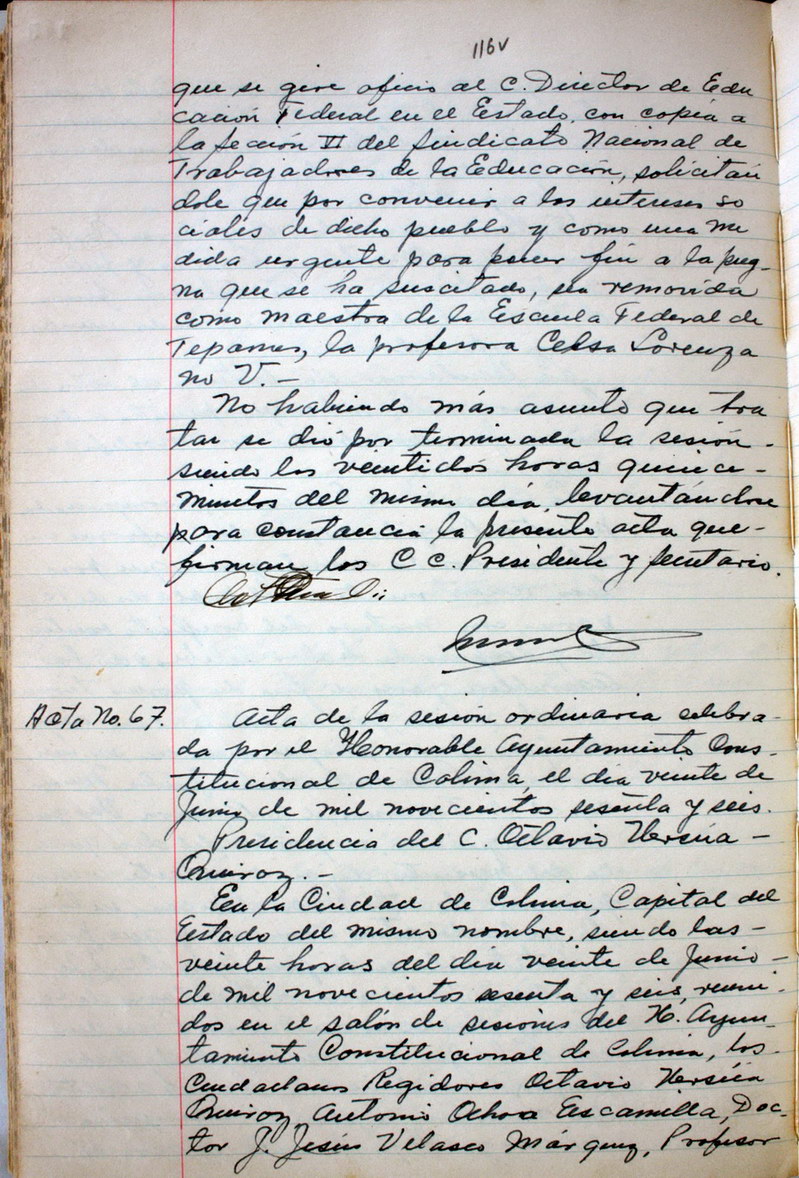 116v
que se gire oficio al C. Director de Edu
cación Federal en el Estado, con copia a
la Sección VI del Sindicato Nacional de
Trabajadores de la Educación, solicitan
dole que por convenir a los intereses so
ciales de dicho pueblo y como una me
dida urgente para poner fin a la pug-
na que se ha suscitado, sea removida
como maestra de la Escuela Federal de
Tepames, la profesora Celsa Lorenza
no V.-
No habiendo más asunto que tra
tar se dió por terminada la sesión-
siendo las veintidós horas quince-
minutos del mismo día, levantándose
para constancia la presente acta que-
firman los C C. Presidente y Secretario.
Acta No. 67.
Acta de la sesión ordinaria celebra-
da por el Honorable Ayuntamiento Cons-
titucional de Colima, el día veinte de
Junio de mil novecientos sesenta y seis.
Presidencia del C. Octavio Ursúa-
Quiroz.-
En la Ciudad de Colima, Capital del
Estado del mismo nombre, siendo las-
veinte horas del día veinte de Junio-
de mil novecientos sesenta y seis, reuni-
dos en el salón de sesiones del H. Ayun-
tamiento Constitucional de Colima, los
Ciudadanos Regidores Octavio Ursúa
Quiroz, Antonio Ochoa Escamilla, Doc-
tor J. Jesús Velasco Márquez, Profesor